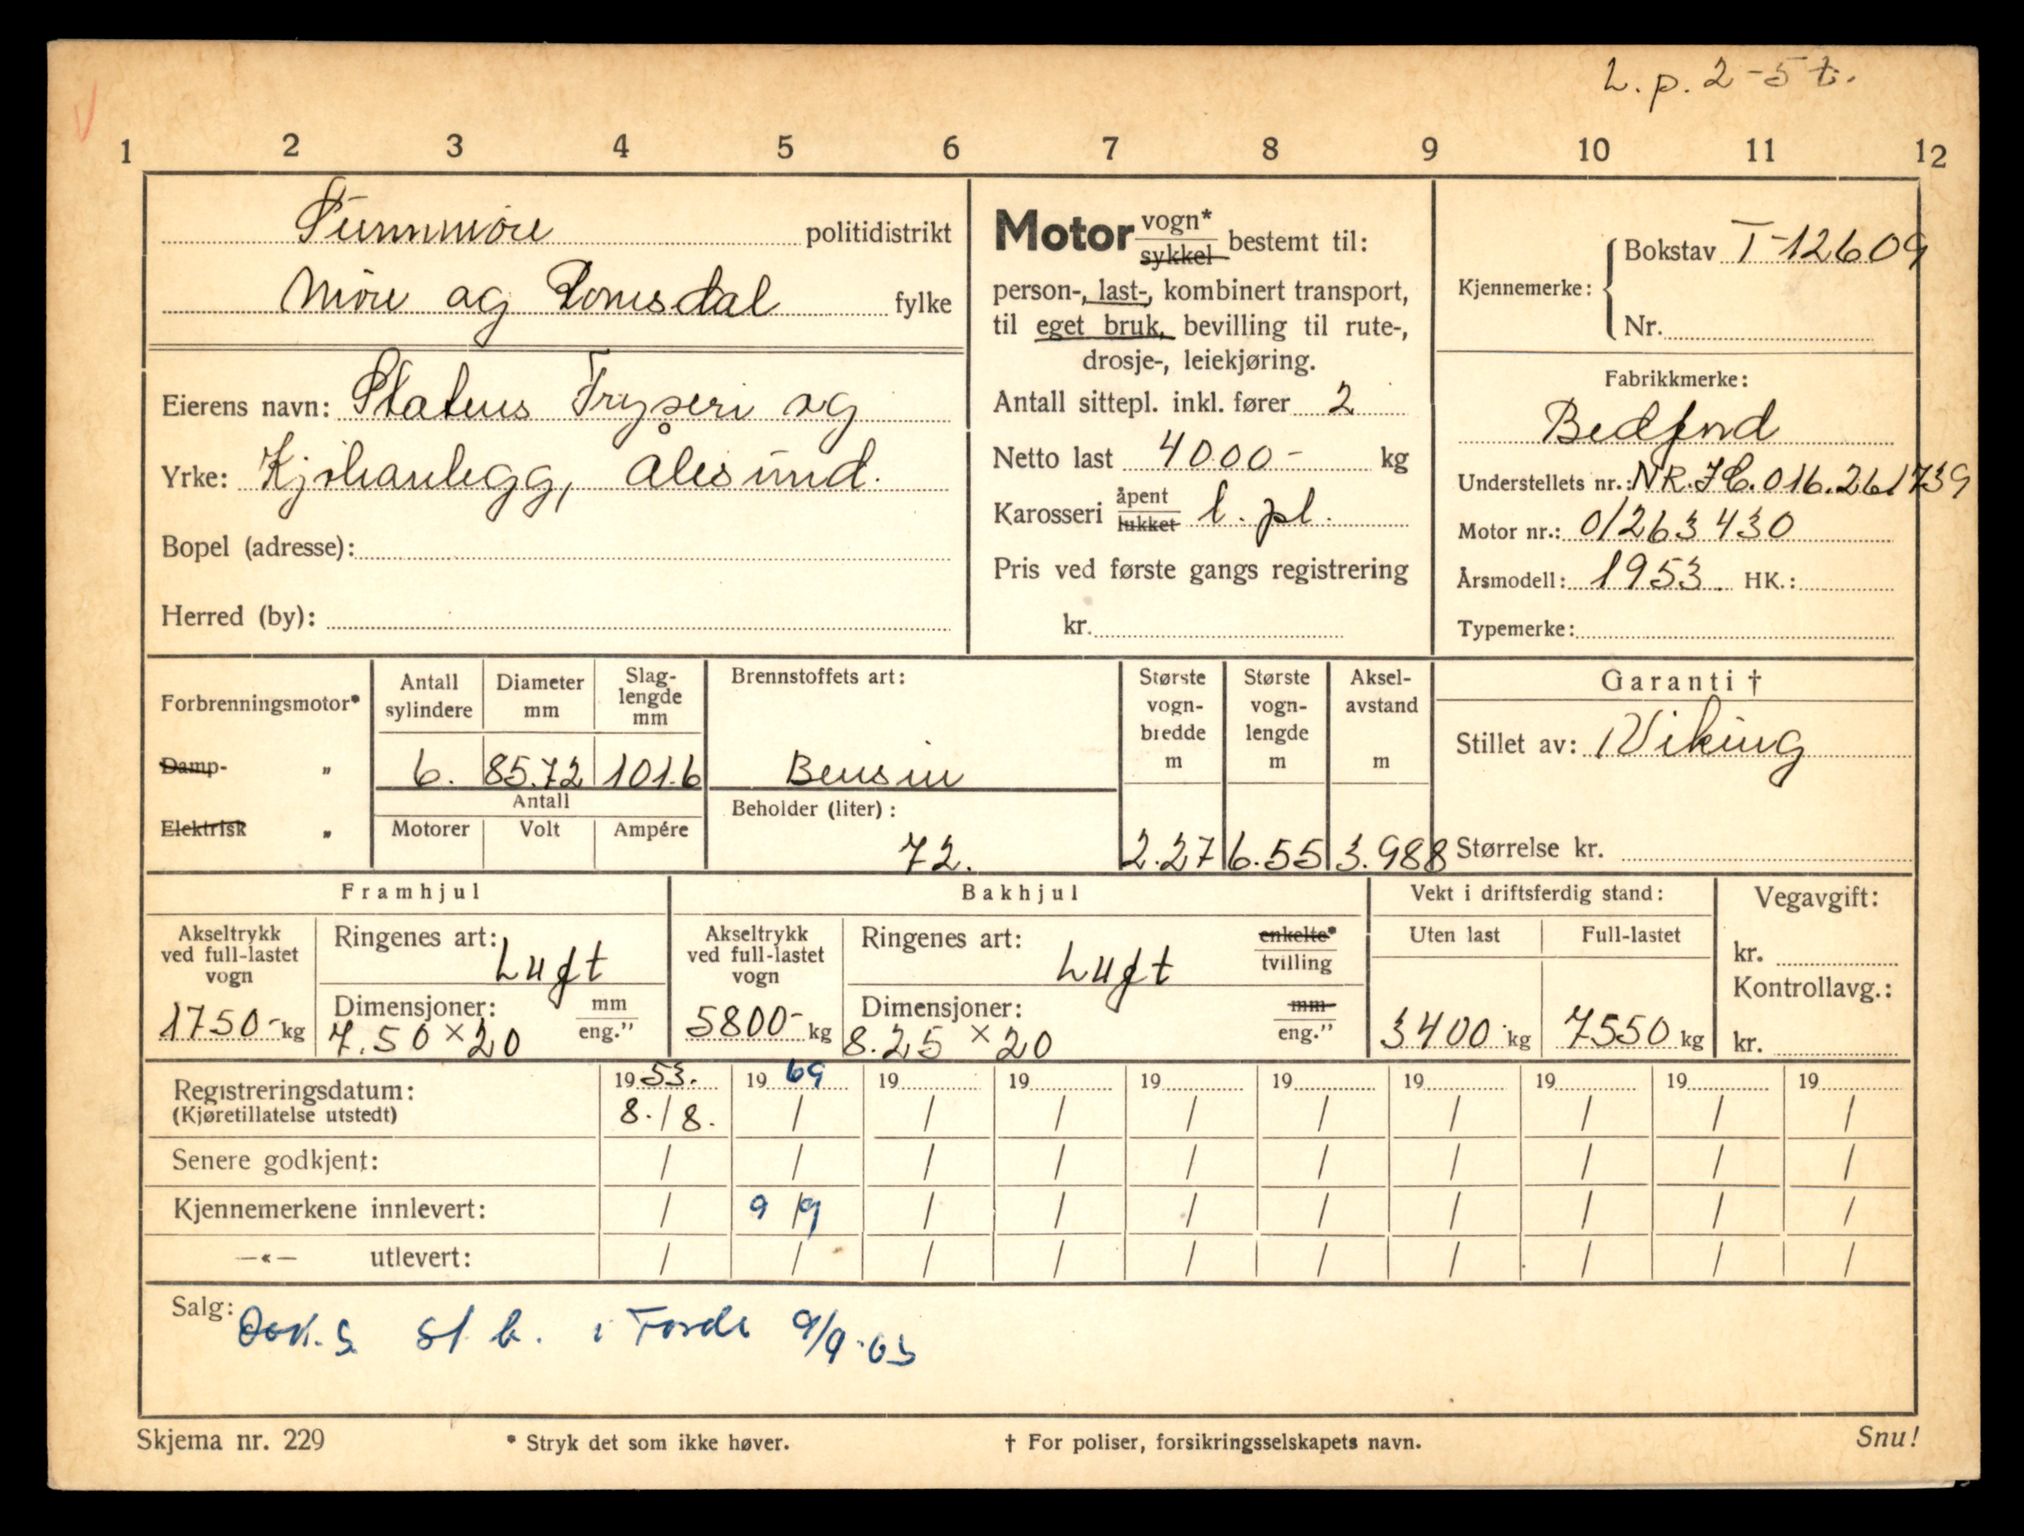 L.p. 2-5 t.
1 2 3 4 5 6 7 8 9 10 11 12
Sunnmøre politidistrikt
Møre og Romsdal fylke
Eierens navn: Statens Fryseri og
Yrke: Kjøleanlegg, Ålesund.
Bopel (adresse):
Herred (by):
Motor vogn* sykkel bestemt til:
person-, last-, kombinert transport,
til eget bruk, bevilling til rute-,
drosje-, leiekjøring.
Antall sittepl. inkl. fører 2
Netto last 4000- kg
Karosseri åpent lukket l. pl.
Pris ved første gangs registrering
kr.
Kjennemerke: Bokstav T-12609
Nr.
Fabrikkmerke:
Bedford
Understellets nr.: NR. JC. 016.261739
Motor nr.: 01263430
Årsmodell: 1953. HK.:
Typemerke:
Forbrenningsmotor*
Damp- „
Elektrisk „
Antall sylindere
6.
Diameter mm
85.72
Slag-lengde mm
101.6
Antall
Motorer Volt Ampére
Brennstoffets art:
Bensin
Beholder (liter):
72.
Største vogn-bredde m
2.27
Største vogn-lengde m
6.55
Aksel-avstand m
3.988
Garanti †
Stillet av: Viking
Størrelse kr.
Framhjul
Akseltrykk ved full-lastet vogn
1750- kg
Ringenes art: Luft
Dimensjoner: mm eng."
7.50 × 20
Bakhjul
Akseltrykk ved full-lastet vogn
5800- kg
Ringenes art: Luft enkelte* tvilling
Dimensjoner: mm eng."
8.25 × 20
Vekt i driftsferdig stand:
Uten last Full-lastet
3400 kg 7550 kg
Vegavgift:
kr.
Kontrollavg.:
kr.
Registreringsdatum: 1953. 1969 19 19 19 19 19 19 19 19
(Kjøretillatelse utstedt) 8./8. / / / / / / / / /
Senere godkjent: / / / / / / / / / /
Kjennemerkene innlevert: / 9/9 / / / / / / / /
—«— utlevert: / / / / / / / / / /
Salg: st b. i Førde 9/9-63
Skjema nr. 229
* Stryk det som ikke høver.
† For poliser, forsikringsselskapets navn.
Snu!